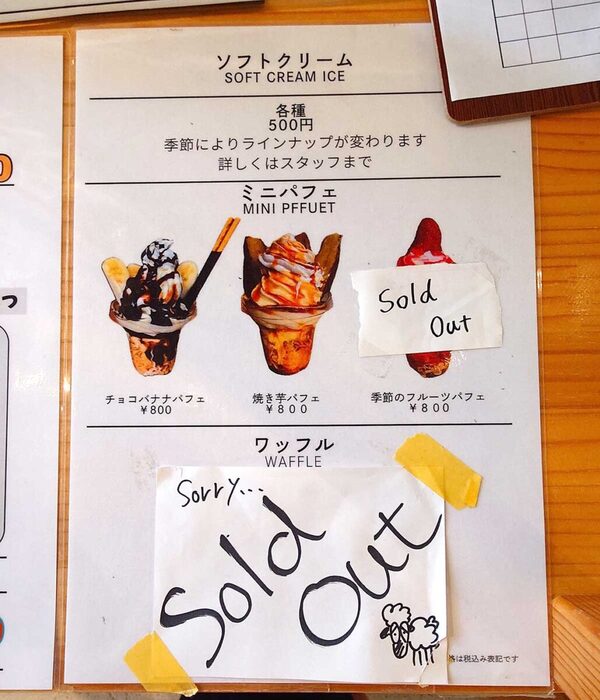 ソフトクリーム
SOFT CREAM ICE
各種
500円
季節によりラインナップが変わります
詳しくはスタッフまで
ミニパフェ
MINI PFFUET
Sold
Out
チョコバナナパフェ
¥800
焼き芋パフェ
¥800
季節のフルーツパフェ
¥800
ワッフル
WAFFLE
Sorry...
Sold
Out
は税込み表記です